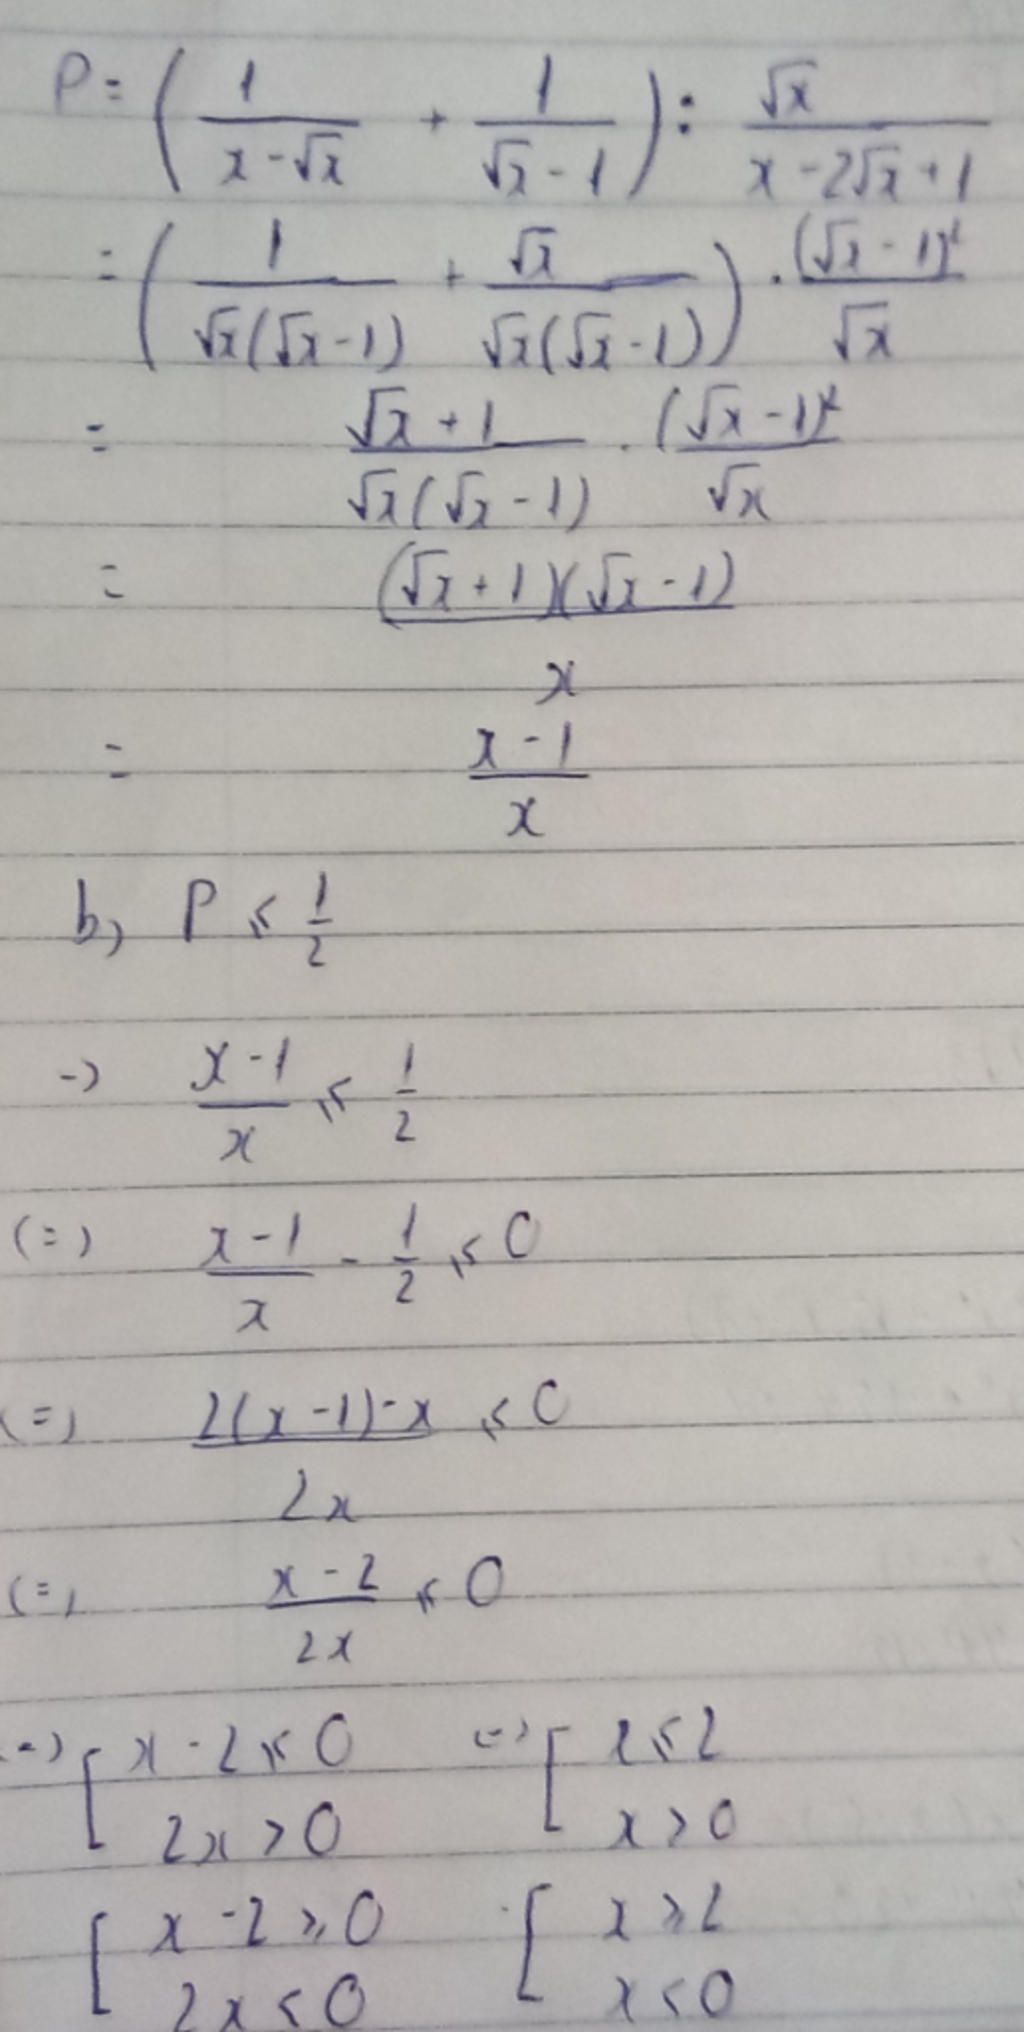 P = ( 1/(x - √x) + 1/(√x - 1) ) : √x/(x - 2√x + 1)
= ( 1/(√x(√x - 1)) + √x/(√x(√x - 1)) ) . (√x - 1)²/√x
= (√x + 1)/(√x(√x - 1)) . (√x - 1)²/√x
= (√x + 1)(√x - 1)/x
= (x - 1)/x
b, P ≤ 1/2
-> (x - 1)/x ≤ 1/2
(=) (x - 1)/x - 1/2 ≤ 0
(=) (2(x - 1) - x)/2x ≤ 0
(=) (x - 2)/2x ≤ 0
(=) [ x - 2 ≤ 0 (=) [ x ≤ 2
2x > 0 x > 0
[ x - 2 ≥ 0 [ x ≥ 2
2x < 0 x < 0